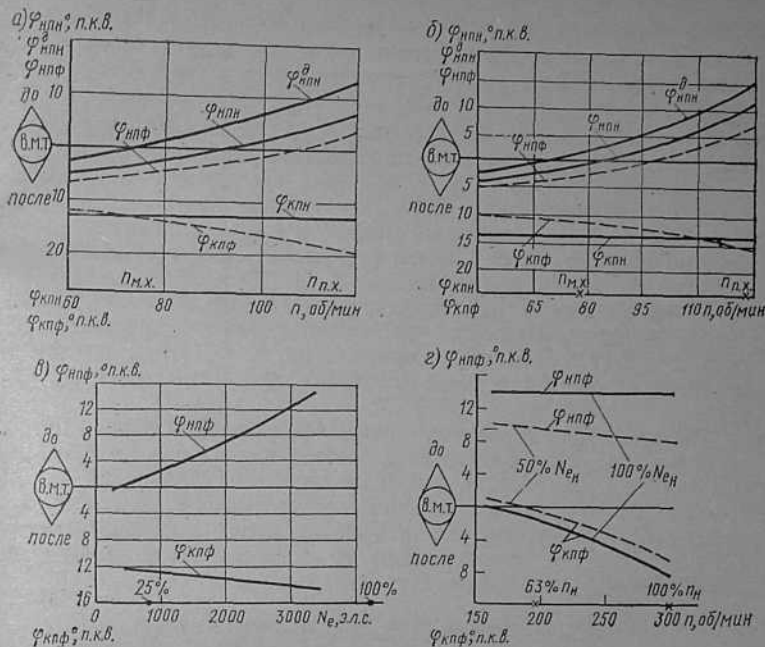 а) φнпн,° п.к.в.
φᵟнпн
φнпф
до
10
в.м.т.
10
после
20
φнпф
φнпн
φᵟнпн
φкпн
φкпф
nм.х.
nп.х.
φкпн 60 80 100 n, об/мин
φкпф,° п.к.в.
б) φнпн,° п.к.в.
φᵟнпн
φнпф
до
10
5
в.м.т.
5
10
15
20
после
φнпф
φнпн
φᵟнпн
φкпф
φкпн
nм.х
nп.х.
φкпн
φкпф 65 80 95 110 n, об/мин
в) φнпф,° п.к.в.
12
8
4
до
в.м.т.
4
8
12
16
после
φнпф
φкпф
25% 100%
0 1000 2000 3000 Ne, э.л.с.
φкпф,° п.к.в.
г) φнпф,° п.к.в.
12
8
4
до
в.м.т.
4
8
после
φнпф
φнпф
50% Neн 100% Neн
φкпф
63% nн 100% nн
150 200 250 300 n, об/мин
φкпф,° п.к.в.